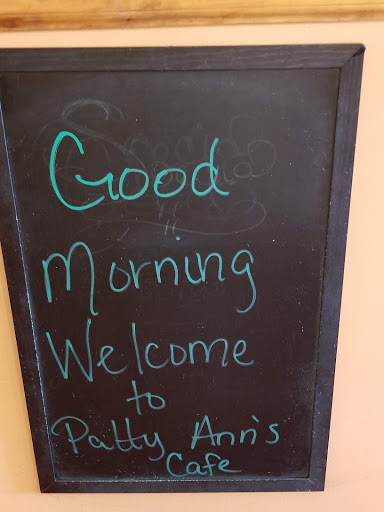 Good
Morning
Welcome
to
Patty Ann's
Cafe